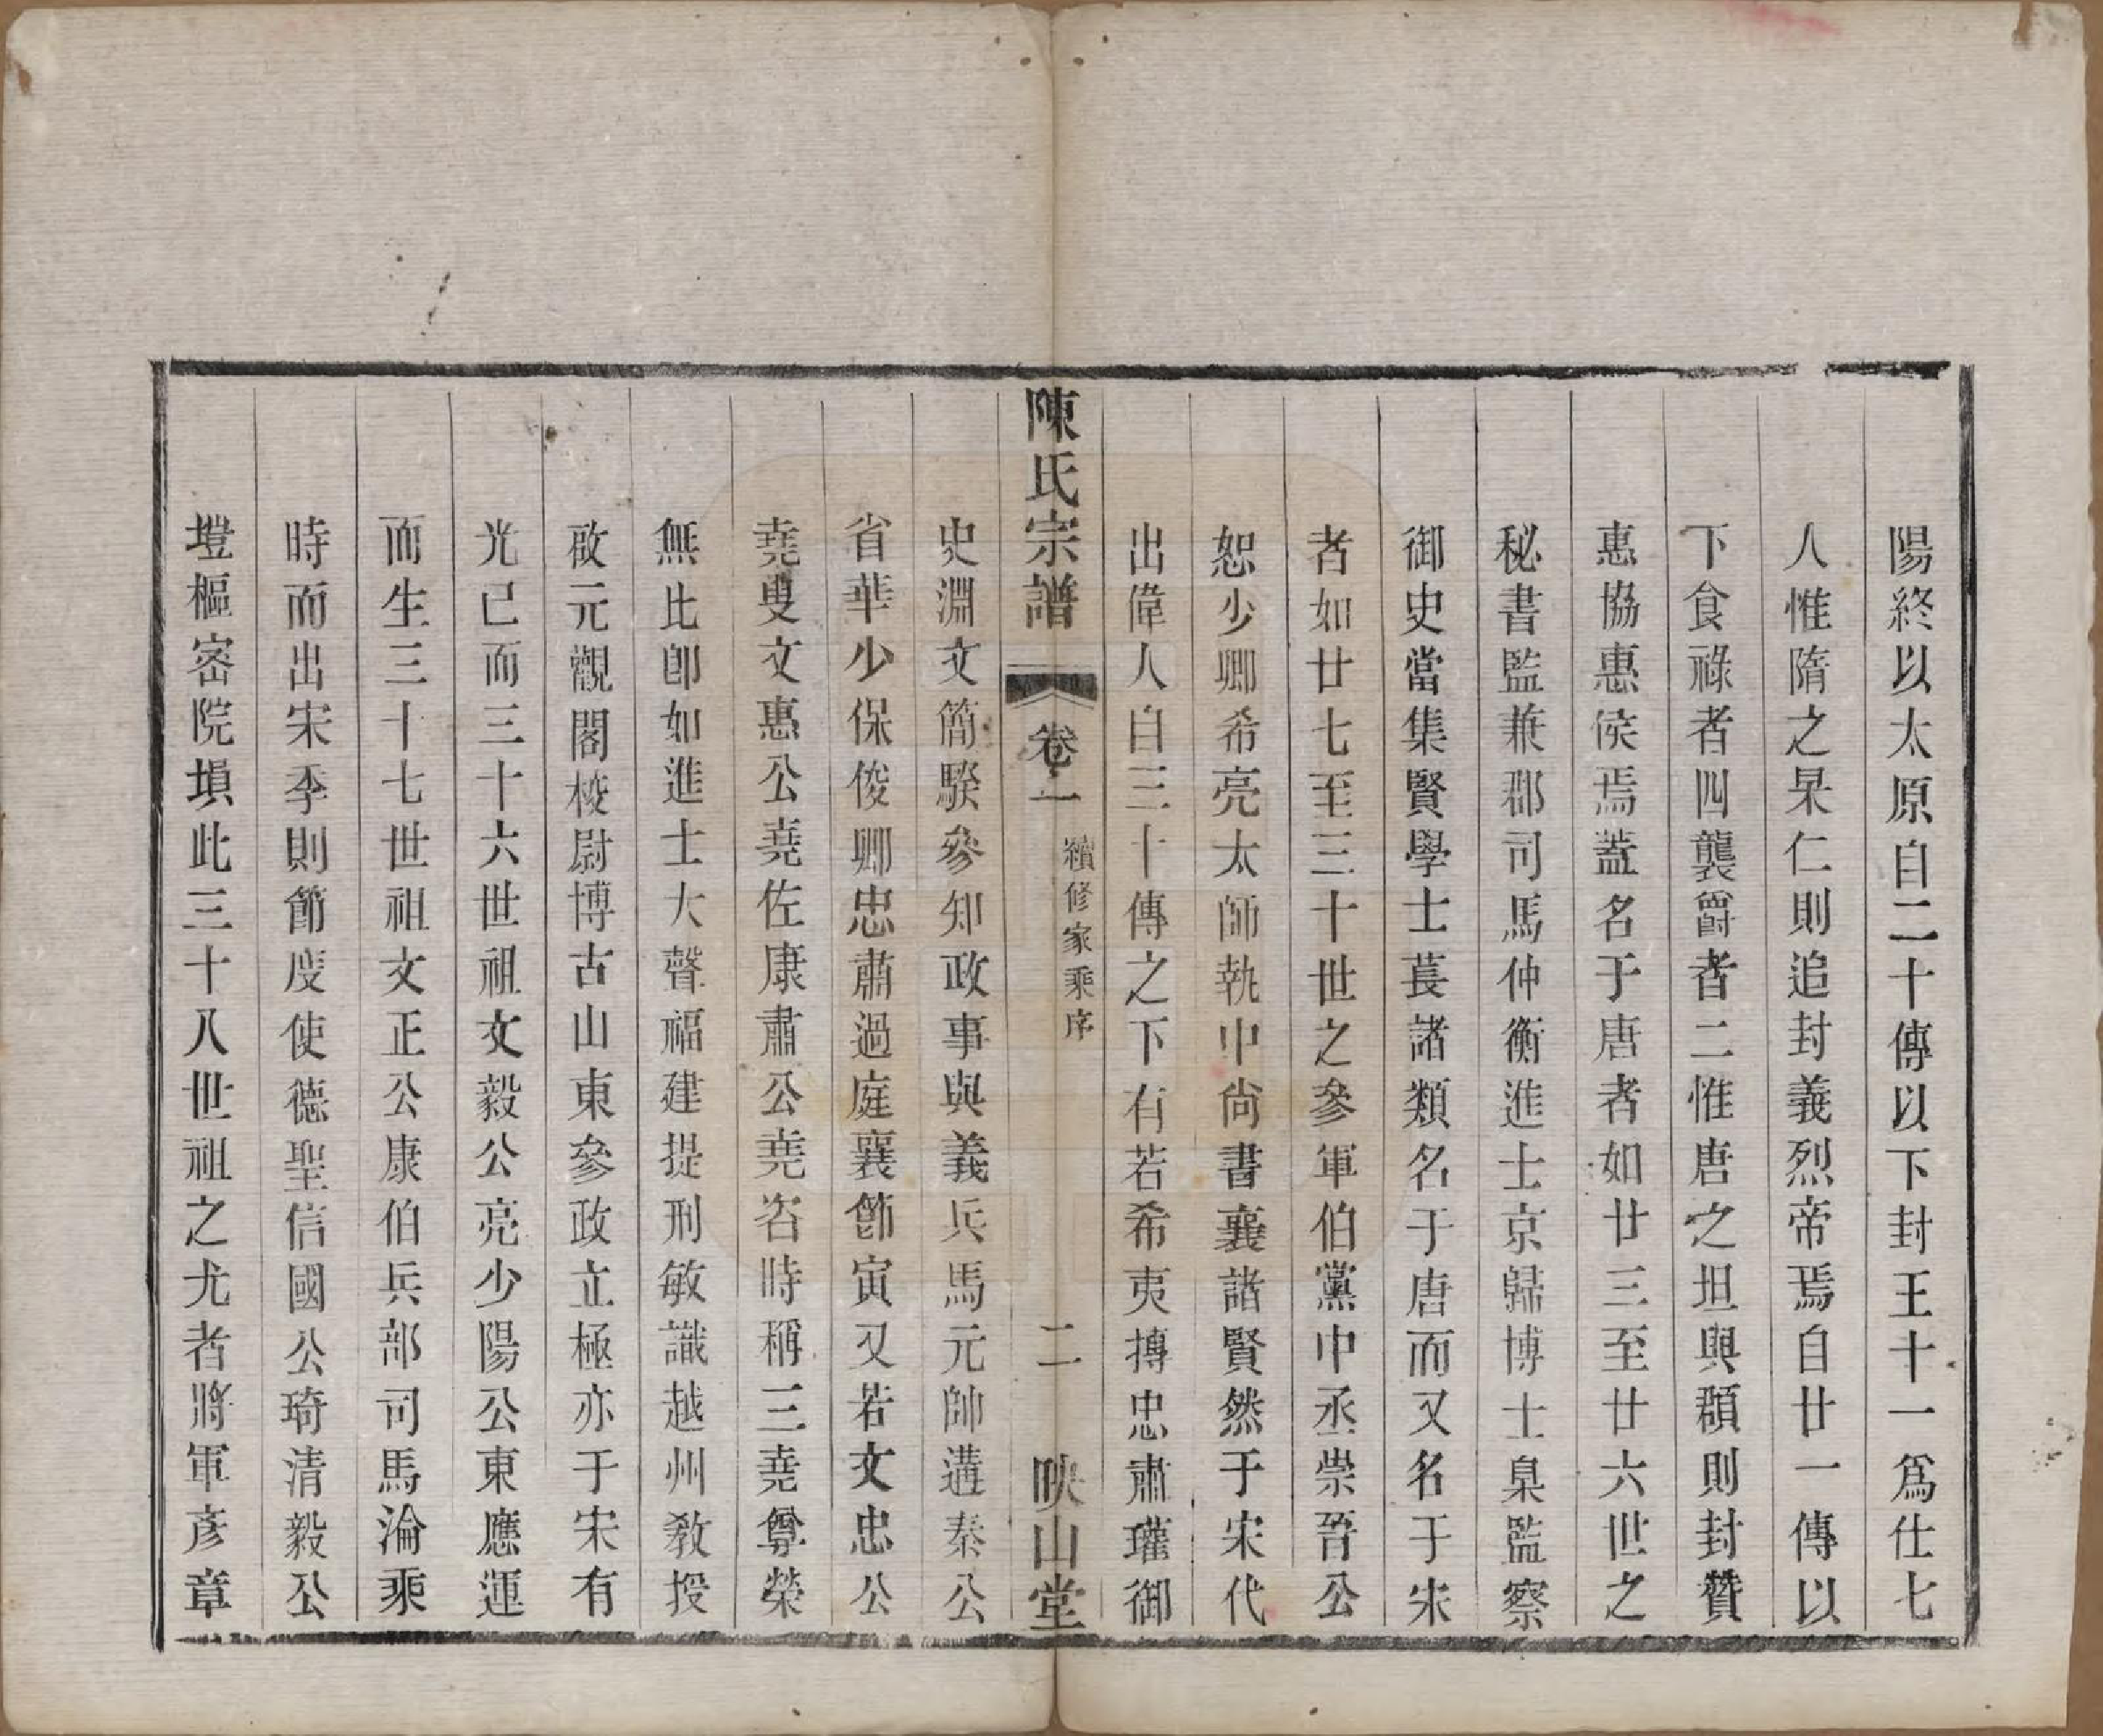 陽終以太原自二十傳以下封王十一爲仕七
人惟隋之杲仁則追封義烈帝焉自廿一傳以
下食祿者四襲爵者二惟唐之坦與頵則封贊
惠協惠侯焉蓋名于唐者如廿三至廿六世之
秘書監兼郡司馬仲衡進士京歸博士臬監察
御史當集賢學士萇諸類名于唐而又名于宋
者如廿七至三十世之參軍伯黨中丞崇吾公
恕少卿希亮太師執中尙書襄諸賢然于宋代
出偉人自三十傳之下有若希夷摶忠肅瓘御
陳氏宗譜 卷一 續修家乘序 二 映山堂
史淵文簡騤參知政事與義兵馬元帥遘秦公
省華少保俊卿忠肅過庭襄節寅又若文忠公
堯叟文惠公堯佐康肅公堯咨時稱三堯尊榮
無比卽如進士大聲福建提刑敏識越州教授
啟元觀閣校尉博古山東參政立極亦于宋有
光已而三十六世祖文毅公亮少陽公東應運
而生三十七世祖文正公康伯兵部司馬淪乘
時而出宋季則節度使德聖信國公琦清毅公
塏樞密院塤此三十八世祖之尤者將軍彥章